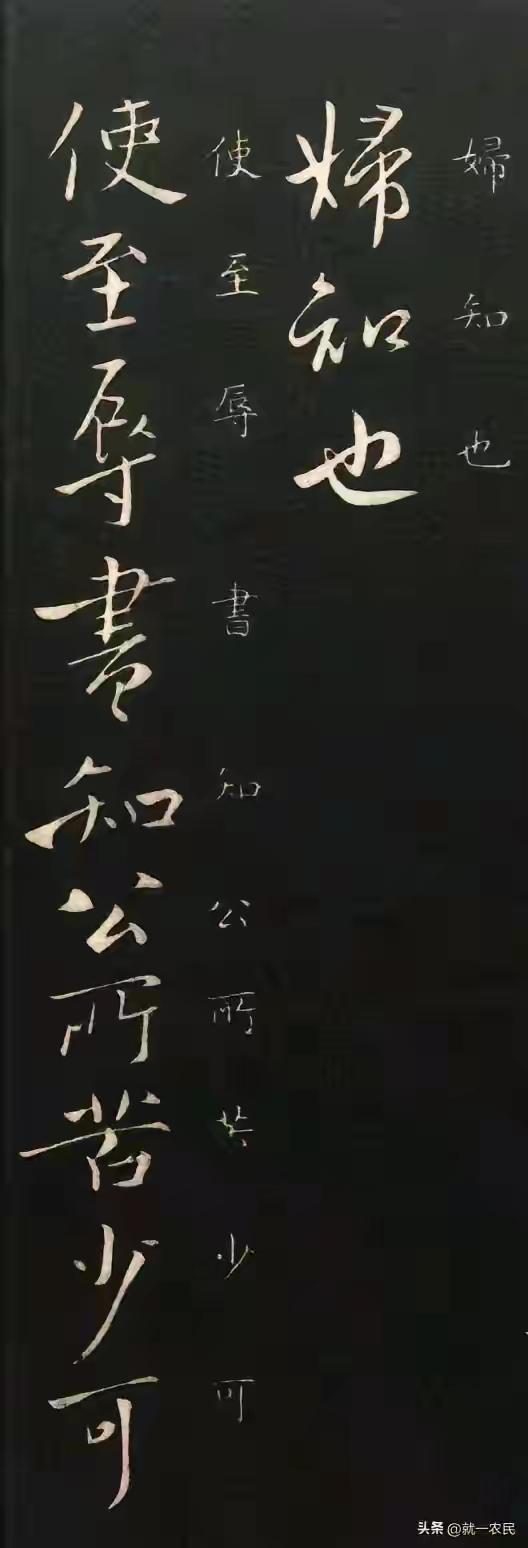 婦知也
婦知也
使至辱書知公所苦少可
使至辱書知公所苦少可
头条 @就一农民